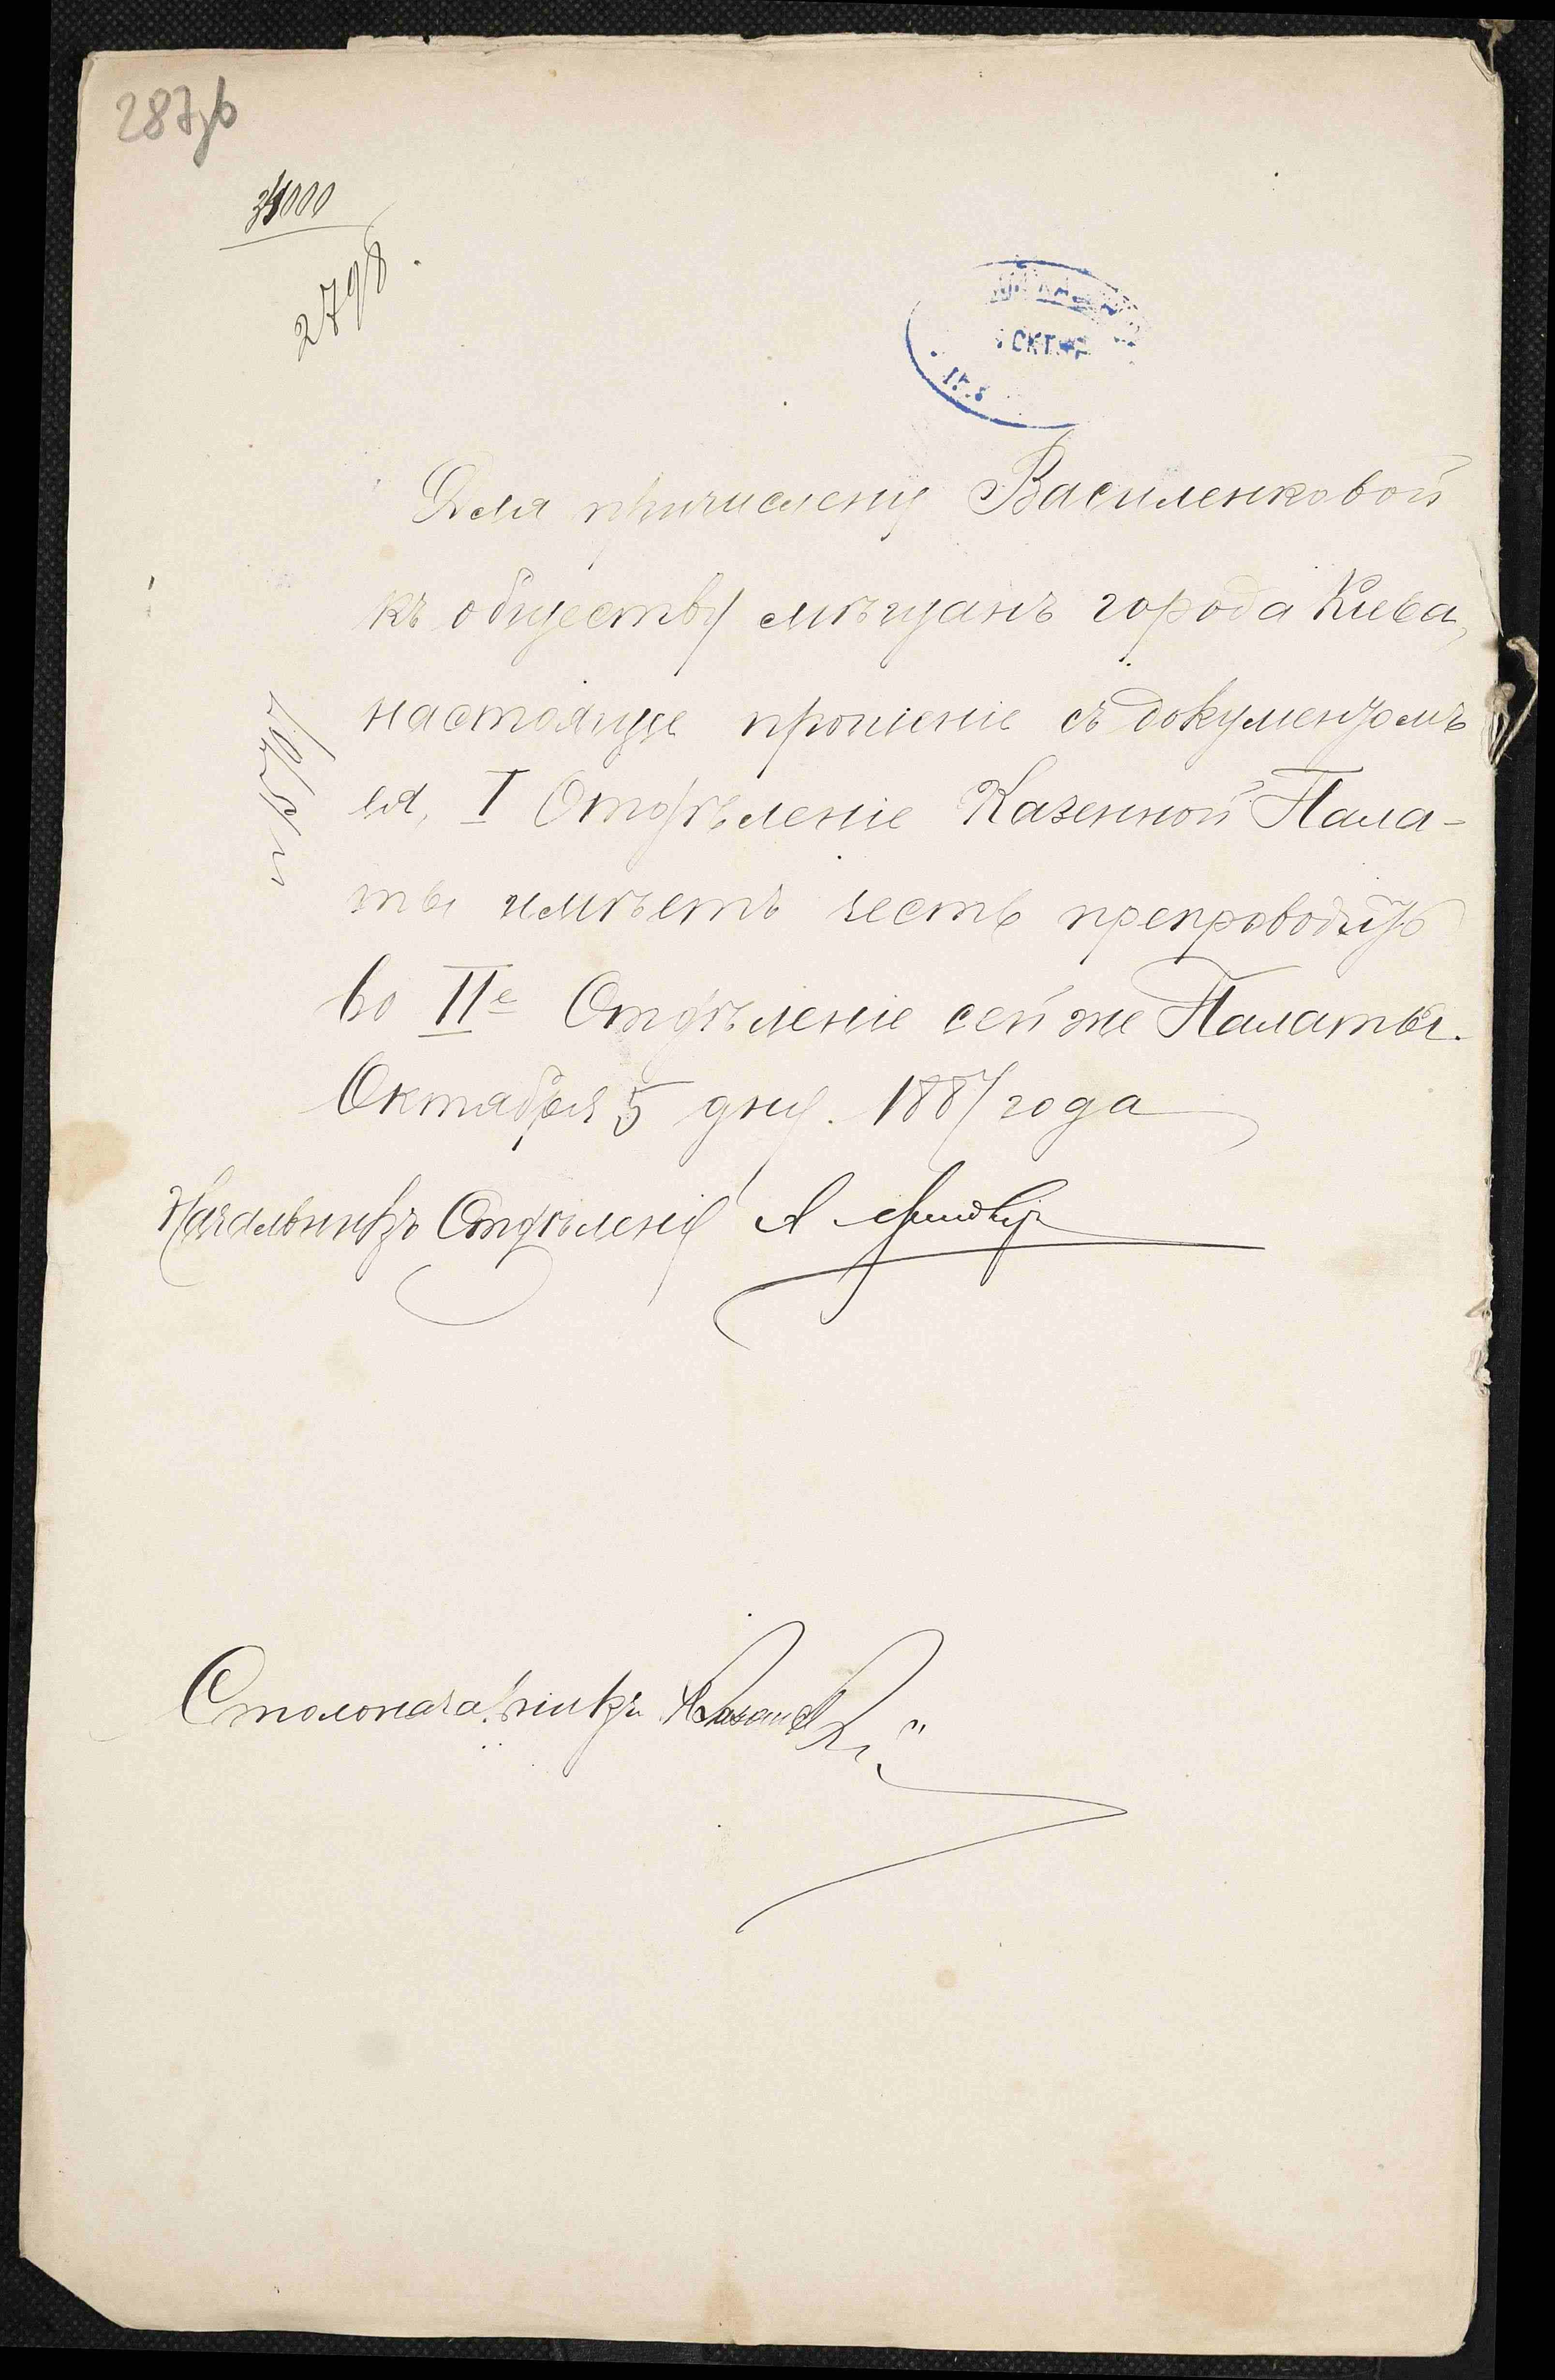 287
2798.
ОКТ
Для причисленія Василенковой
къ обществу мѣщанъ города Кіева,
настоящее прошеніе съ документомъ
ея, I Отдѣленіе Казенной Пала-
ты имѣетъ честь препроводить
во IIе Отдѣленіе сей же Палаты.
Октября 5 дня. 1887 года
Начальникъ Отдѣленія А
Столоначальникъ